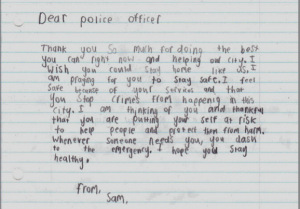 Dear police officer
Thank you so much for doing the best
you can right now and helping our city. I
wish you could stay home like us. I
am praying for you to stay safe. I feel
safe because of your services and that
you stop crimes from happening in this
city. I am thinking of you and thankful
that you are putting your self at risk
to help people and protect them from harm.
Whenever someone needs you, you dash
to the emergency. I hope you stay
healthy.
From,
Sam.